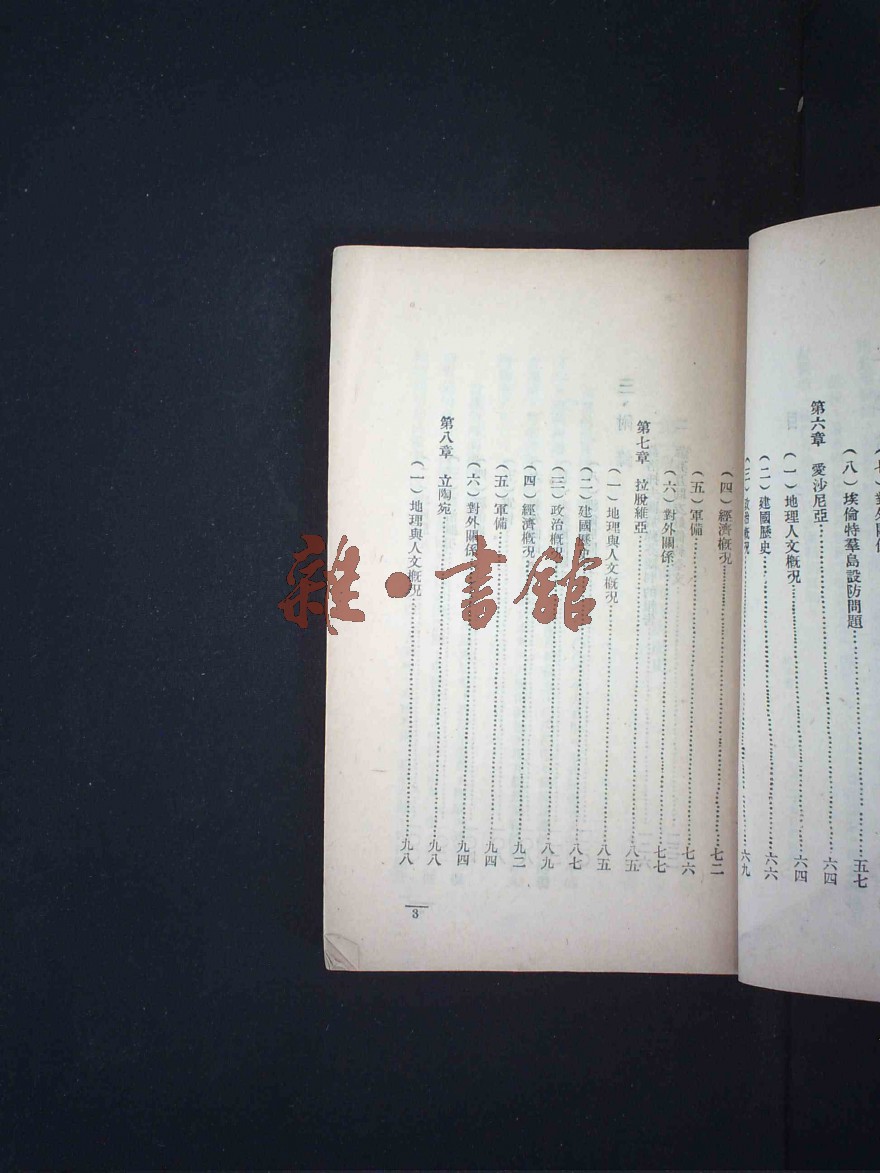 （八）埃倫特羣島設防問題……五七
第六章　愛沙尼亞……六四
（一）地理人文概況……六四
（二）建國歷史……六六
（三）政治概況……六九
（四）經濟概況……七二
（五）軍備……七六
（六）對外關係……七七
第七章　拉脫維亞……八五
（一）地理與人文概況……八五
（二）建國歷史……八七
（三）政治概況……八九
（四）經濟概況……九二
（五）軍備……九四
（六）對外關係……九四
第八章　立陶宛……九八
（一）地理與人文概況……九八
3
雜·書館